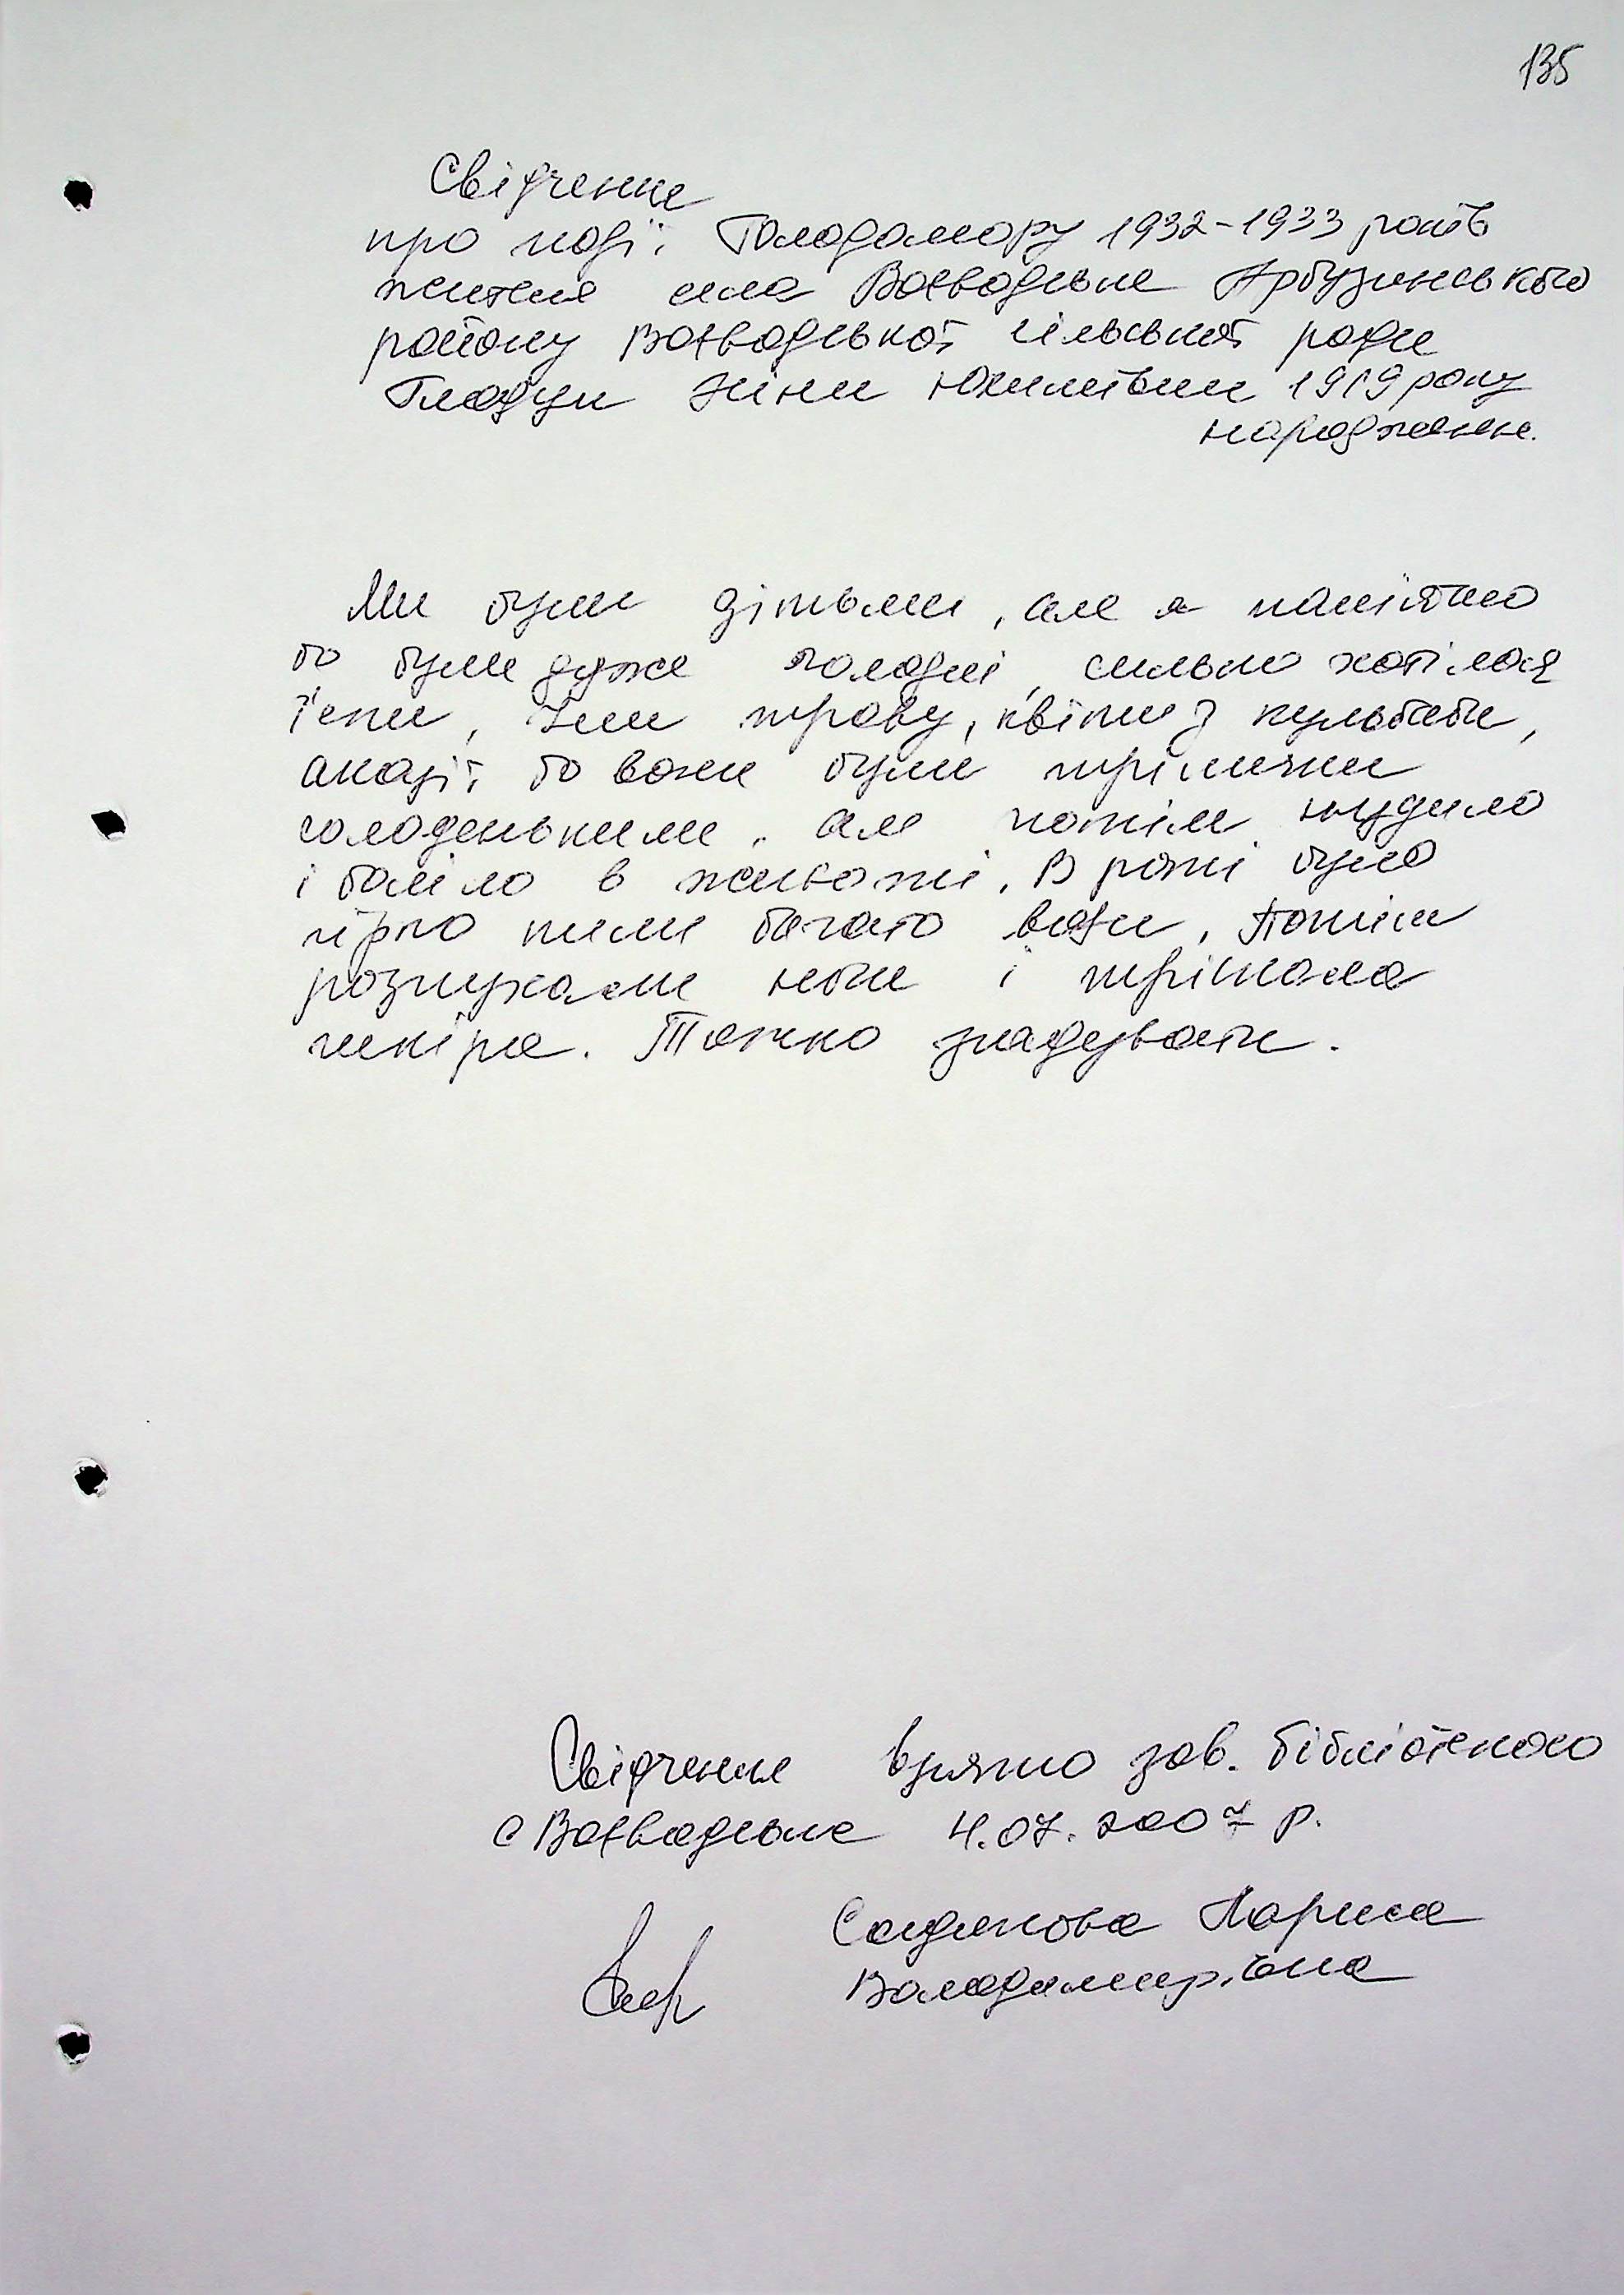 135
Свідчення
про події Голодомору 1932-1933 років
жителя села Воєводське Арбузинського
району Воєводської сільської ради
Гладун Зіни Юхимівни 1919 року
народження.
Ми були дітьми, але я памятаю
бо були дуже голодні, сильно хотілося
їсти, їли траву, квіти з кульбаби,
акації бо вони були трішечки
солоденькими, але потім нудило
і боліло в животі. В роті було
гірко пили багато води, потім
розпухали ноги і тріскала
шкіра. Тяжко згадувати.
Свідчення взято зав. бібліотекою
с Воєводське 4.07.2007 р.
Лариса
Володимирівна